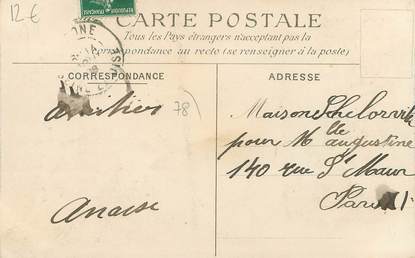 12€
CARTE POSTALE
Tous les Pays étrangers n'acceptant pas la
Correspondance au recto (se renseigner à la poste)
CORRESPONDANCE
ADRESSE
amitiés
78)
Maison
pour Mlle augustine
140 rue St Maur
Paris
Anaise